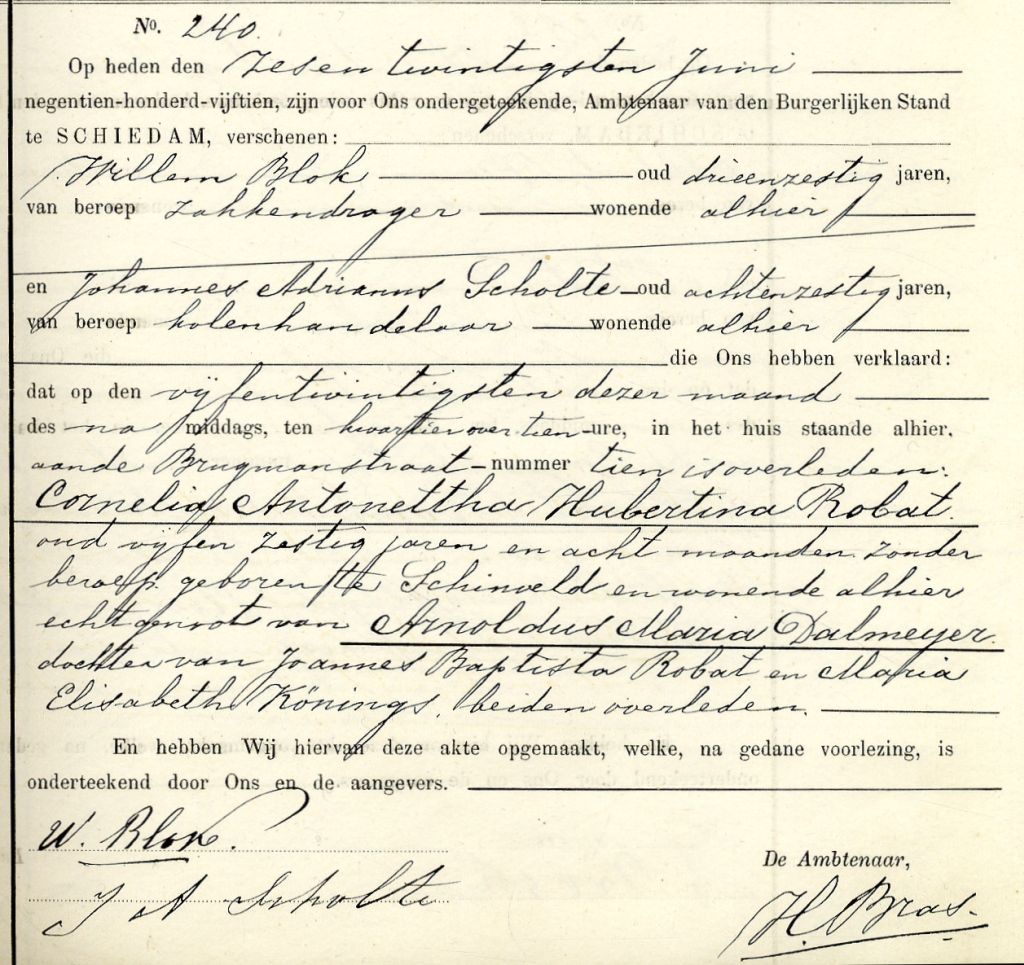 No. 240.
Op heden den Zesentwintigsten Juni
negentien-honderd-vijftien, zijn voor Ons ondergeteekende, Ambtenaar van den Burgerlijken Stand
te SCHIEDAM, verschenen:
Willem Blok oud drieenzestig jaren,
van beroep zakkendrager wonende alhier
en Johannes Adrianus Scholte oud achtenzestig jaren,
van beroep kolenhandelaar wonende alhier
die Ons hebben verklaard:
dat op den vijfentwintigsten dezer maand
des na middags, ten kwartier over tien ure, in het huis staande alhier,
aande Brugmanstraat nummer tien is overleden:
Cornelia Antonettha Hubertina Robat.
oud vijfen zestig jaren en acht maanden, zonder
beroep, geboren te Schinveld en wonende alhier
echtgenoot van Arnoldus Maria Dalmeyer.
dochter van Joannes Baptista Robat en Maria
Elisabeth Könings, beiden overleden.
En hebben Wij hiervan deze akte opgemaakt, welke, na gedane voorlezing, is
onderteekend door Ons en de aangevers.
W. Blok.
De Ambtenaar,
J A Scholte
H. Bras.